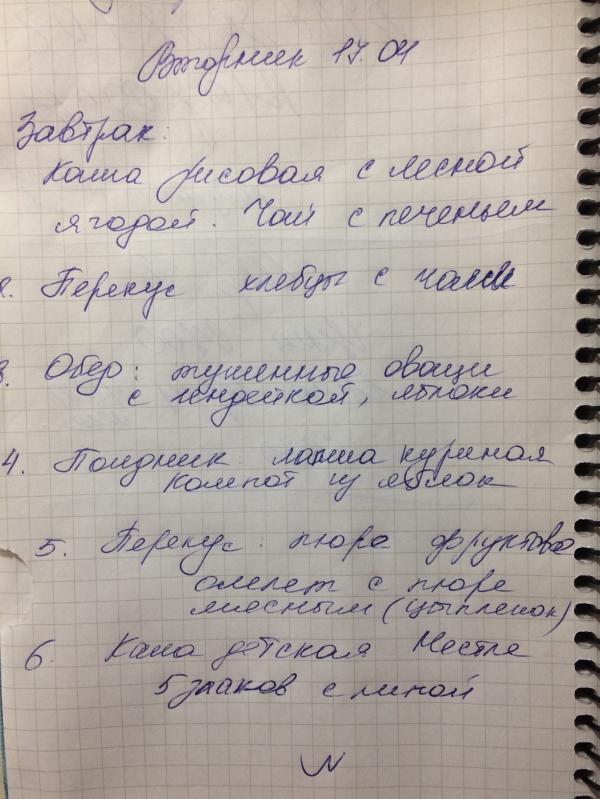 Вторник 17.04
Завтрак:
Каша рисовая с лесной
ягодой. Чай с печеньем
2. Перекус хлебцы с чаем
3. Обед: тушенные овощи
с индейкой, яблоки
4. Полдник лапша куриная
Компот из яблок
5. Перекус: пюре фруктовое
омлет с пюре
мясным (цыпленок)
6. Каша детская Нестле
5 злаков с липой